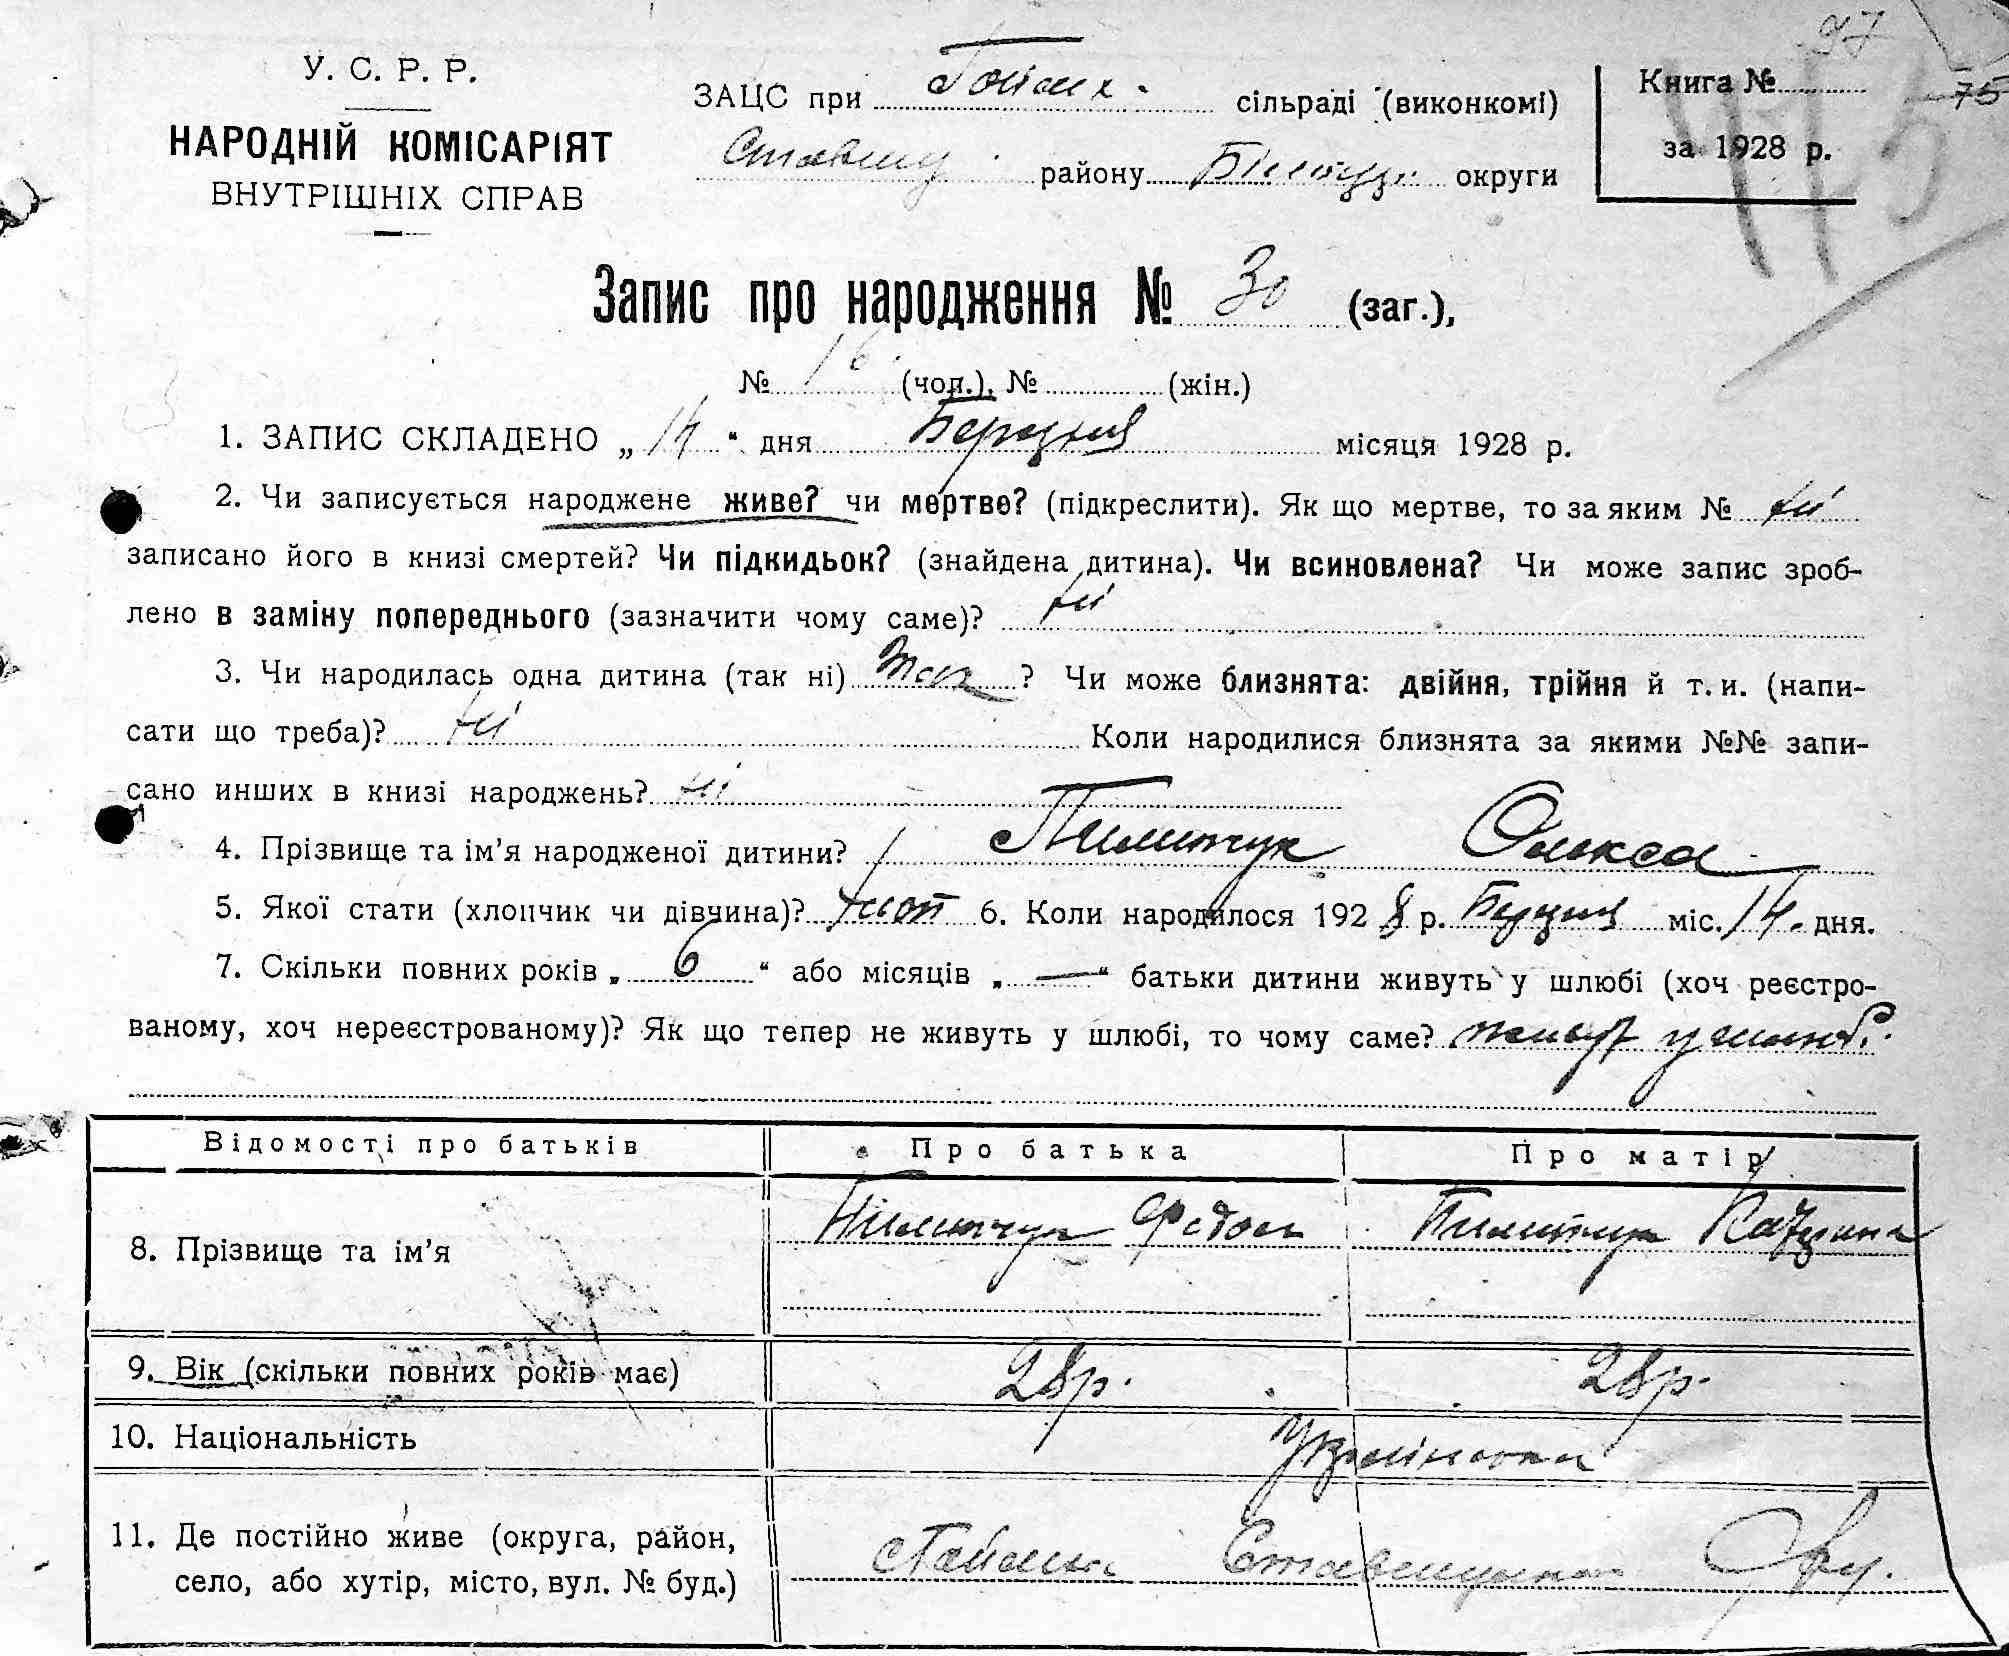 97
75
У. С. Р. Р.
НАРОДНІЙ КОМІСАРІЯТ
ВНУТРІШНІХ СПРАВ
ЗАЦС при сільраді (виконкомі)
району округи
Книга №
за 1928 р.
Запис про народження № 30 (заг.),
№ 16 (чол.), № (жін.)
1. ЗАПИС СКЛАДЕНО „14“ дня Березня місяця 1928 р.
2. Чи записується народжене живе? чи мертве? (підкреслити). Як що мертве, то за яким № ні
записано його в книзі смертей? Чи підкидьок? (знайдена дитина). Чи всиновлена? Чи може запис зроб-
лено в заміну попереднього (зазначити чому саме)? ні
3. Чи народилась одна дитина (так ні) Так? Чи може близнята: двійня, трійня й т. и. (напи-
сати що треба)? ні Коли народилися близнята за якими №№ запи-
сано инших в книзі народжень? ні
4. Прізвище та ім'я народженої дитини? Пилипчук Олекса
5. Якої стати (хлопчик чи дівчина)? хлоп 6. Коли народилося 1928 р. Березня міс. 14. дня.
7. Скільки повних років „6“ або місяців „—“ батьки дитини живуть у шлюбі (хоч реєстро-
ваному, хоч нереєстрованому)? Як що тепер не живуть у шлюбі, то чому саме? живут у шлюбі
Відомості про батьків Про батька Про матір
8. Прізвище та ім'я Пилипчук Федось Пилипчук Катерина
9. Вік (скільки повних років має) 28р. 28р.
10. Національність Українська
11. Де постійно живе (округа, район,
село, або хутір, місто, вул. № буд.)